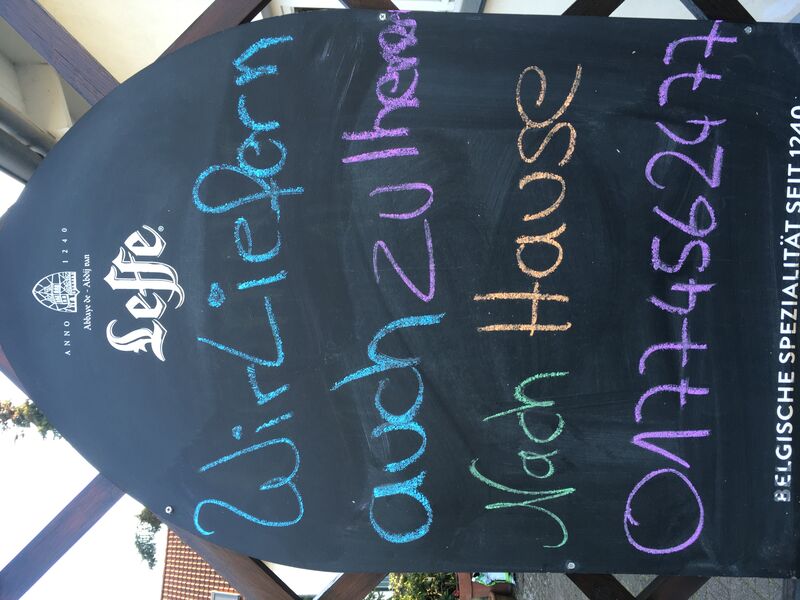 ANNO 1240
Abbaye de - Abdij van
Leffe®
Wir Liefern
auch zu Ihenen
Nach Hause
01774562477
BELGISCHE SPEZIALITÄT SEIT 1240